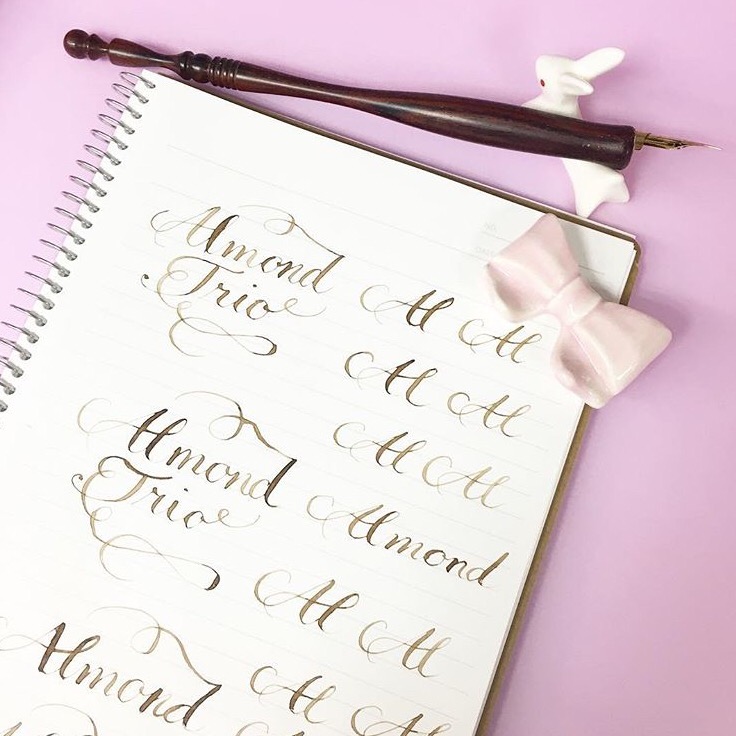 Almond
Trio
Al Al
Al Al
Al Al
Almond
Trio
Almond
Al Al
Almond
Al Al